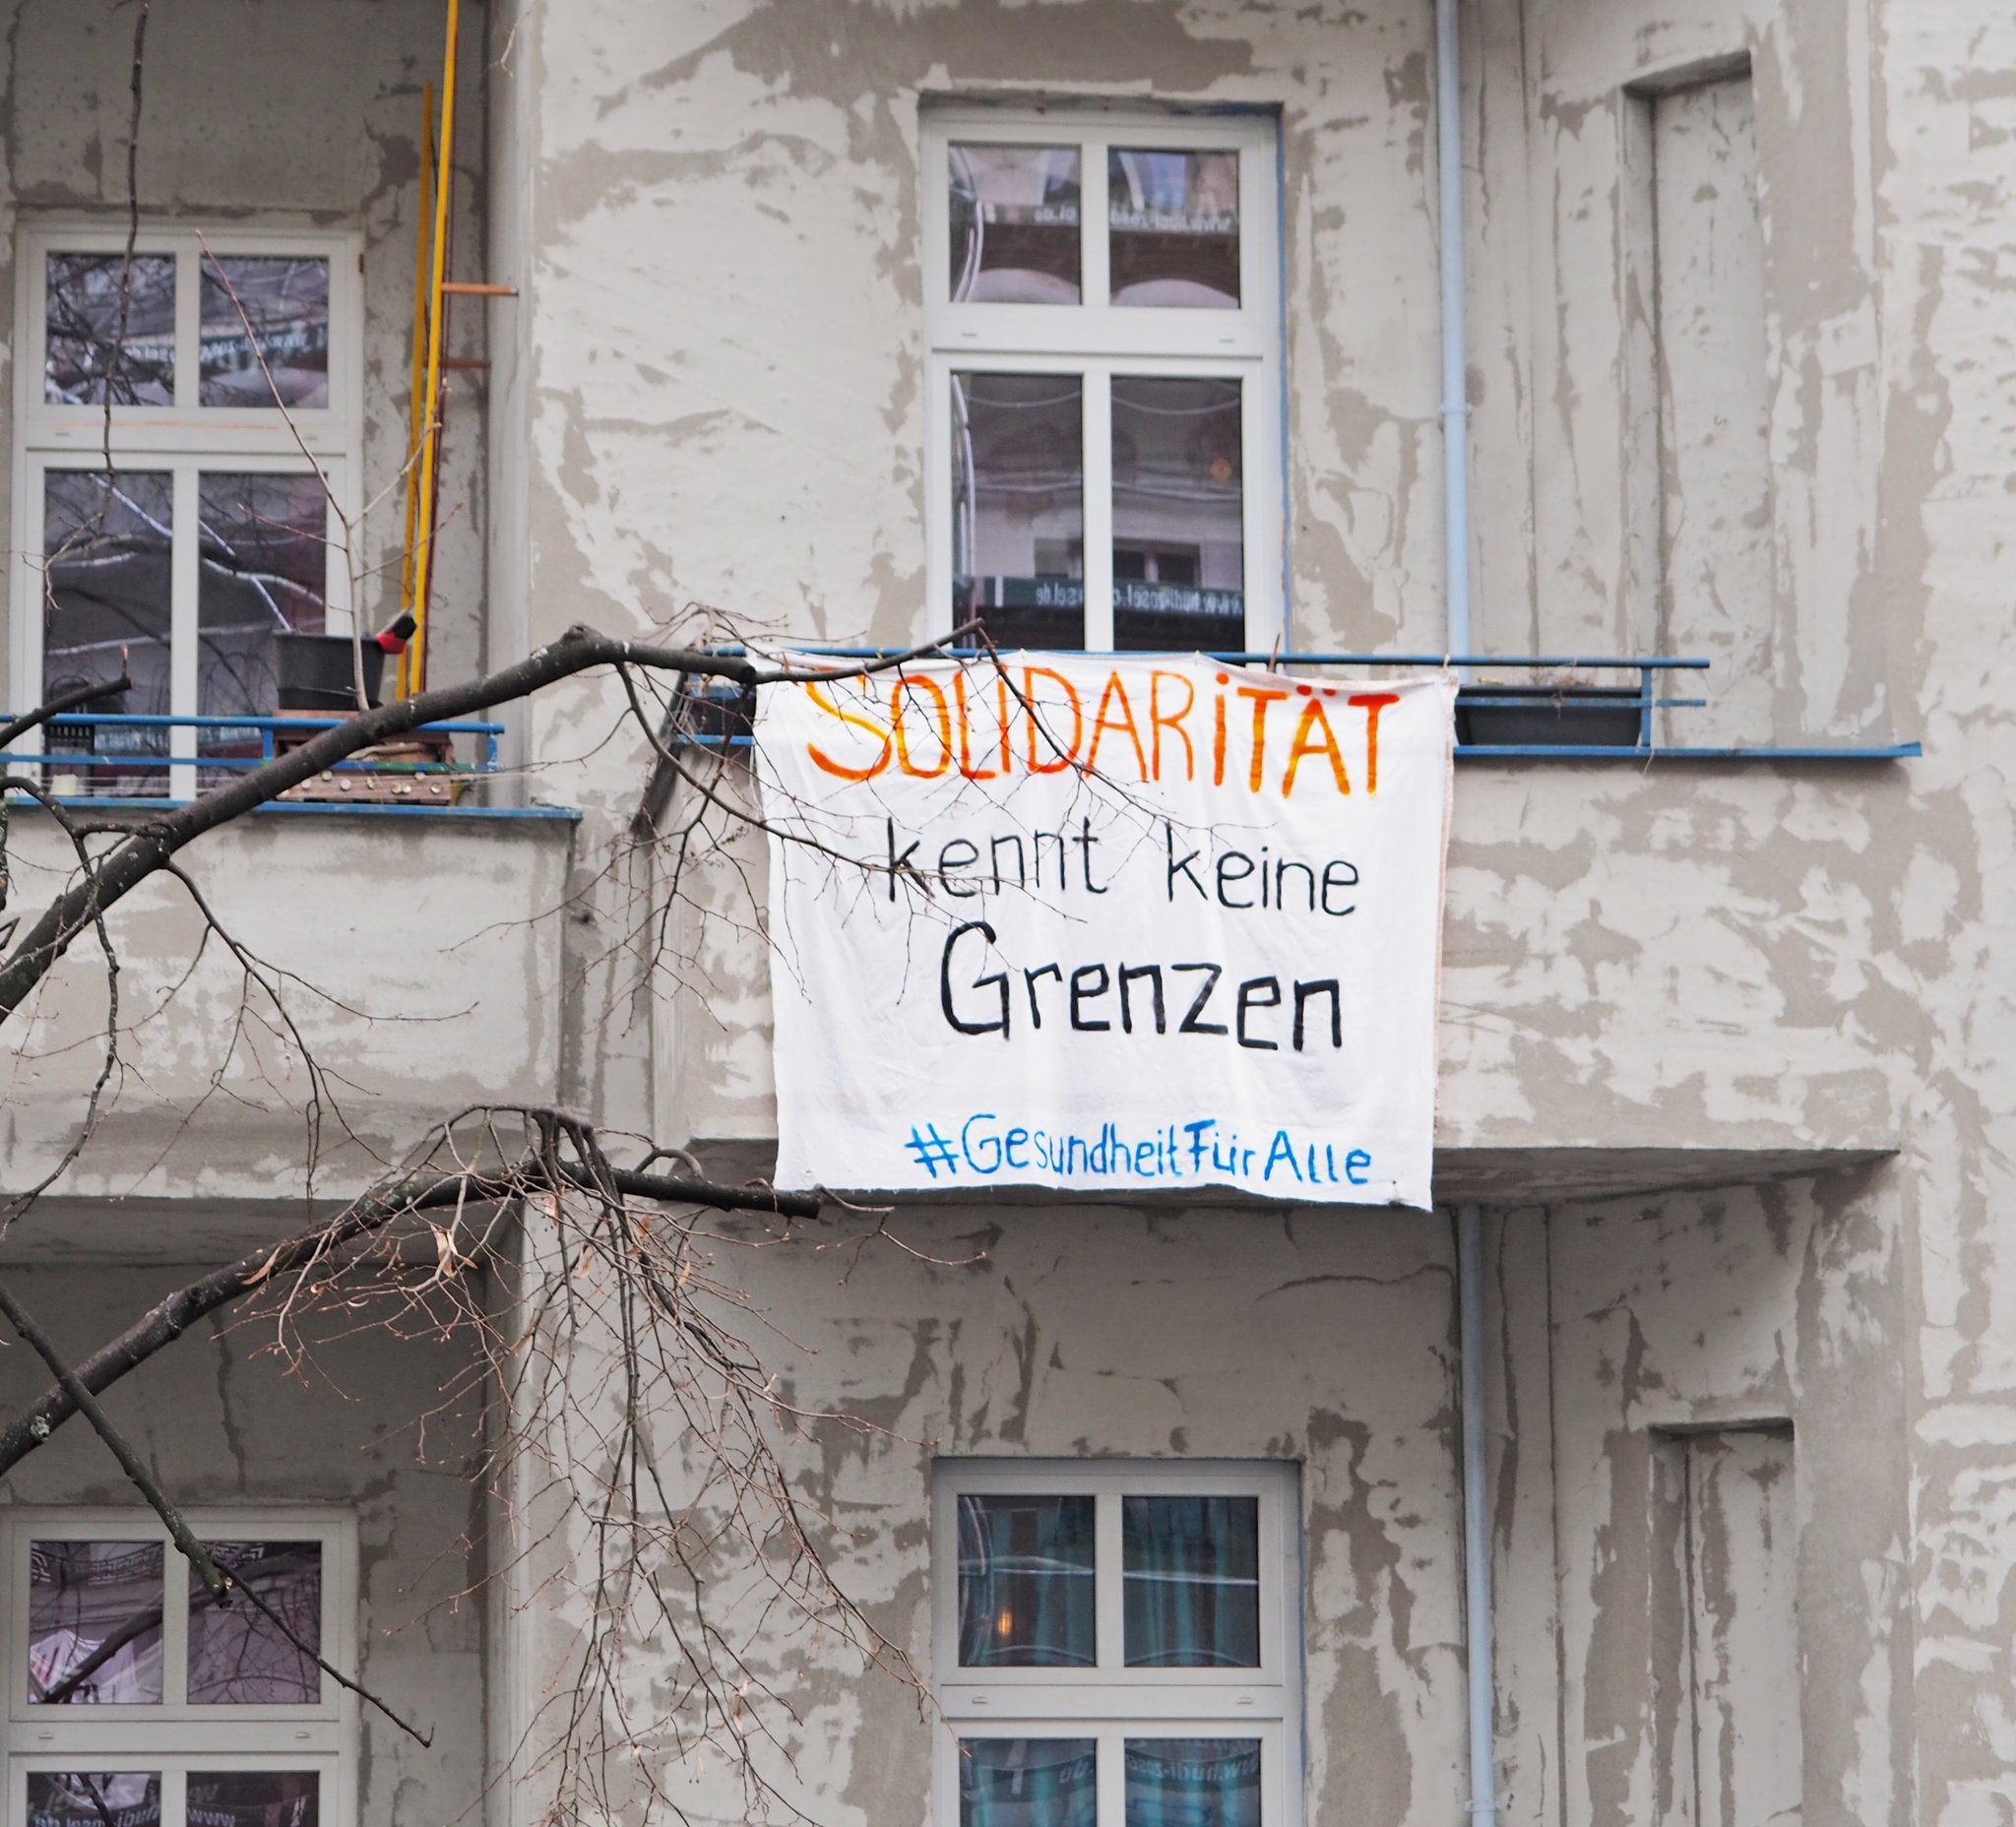 SOLIDARiTÄT
kennt keine
Grenzen
#GesundheitFürAlle